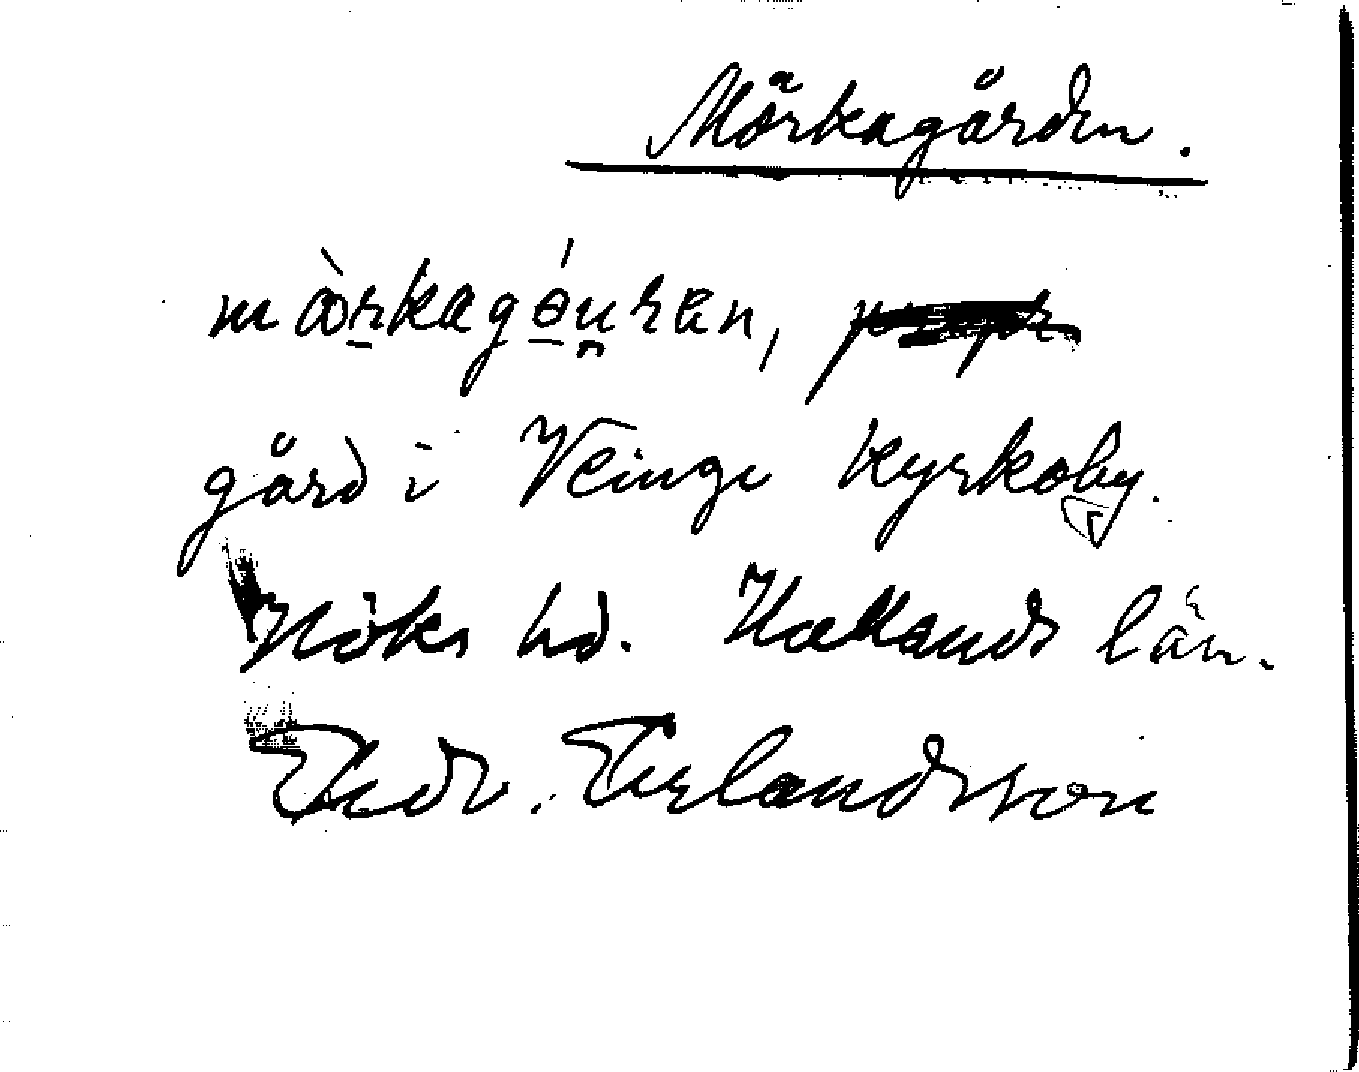 Mörkagården.
mœ̀rkagɵ́u̯ran,
gård i Veinge kyrkoby.
Höks hd. Hallands län.
Andr. Erlandsson